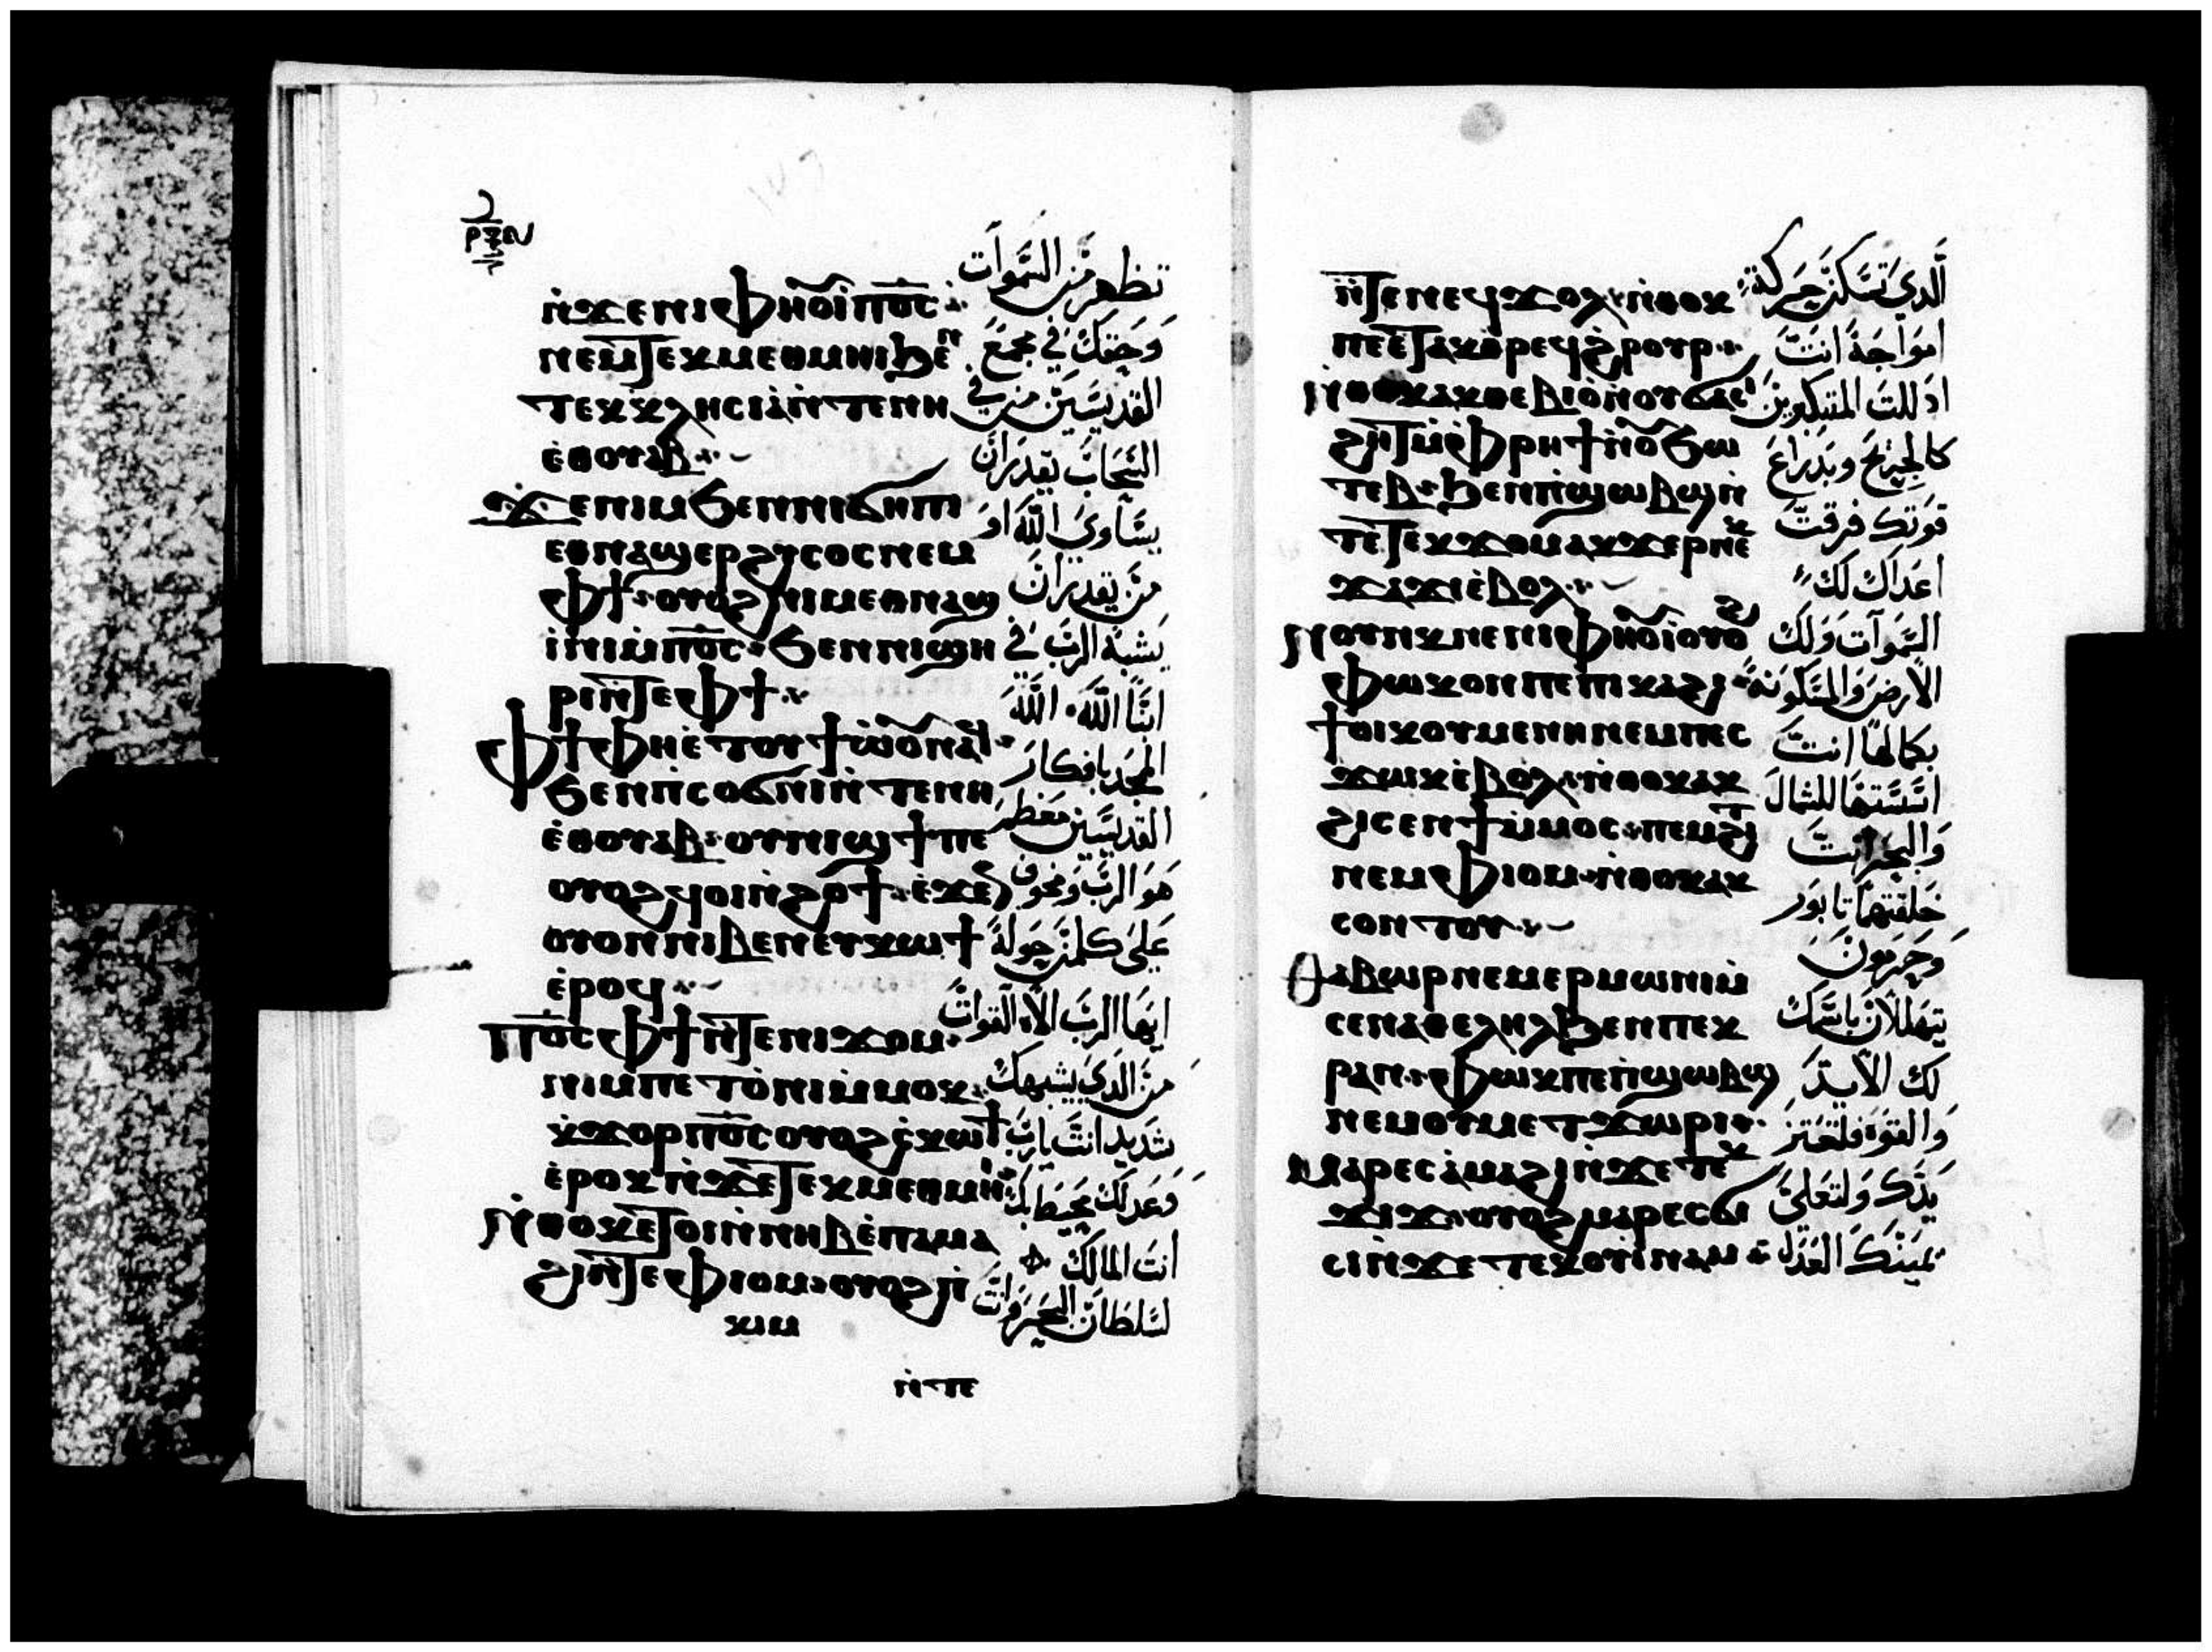 ⲣⲝⲁ
ⲛ̀ϫⲉⲛⲓⲫⲏⲟⲩⲓ̀ ⲡⲟ̅ⲥ̅
ⲛⲉⲙ ⲧ̅ⲉⲕⲙⲉⲑⲙⲏⲓ ϧⲉⲛ
ⲧⲉⲕⲕⲗⲏⲥⲓⲁ̀ ⲛ̀ⲧⲉⲛⲏ
ⲉ̀ⲑⲟⲩⲁⲃ
ϫⲉ ⲛⲓⲙ ϧⲉⲛ ⲛⲓϭⲏⲡⲓ
ⲉⲑⲛⲁϣⲉⲣϩⲩⲥⲟⲥ ⲛⲉⲙ
ⲫϯ ⲟⲩⲟϩ ⲛⲓⲙ ⲉⲑⲛⲁϣ
ⲓ̀ⲛⲓ ⲙ̀ⲡⲟ̅ⲥ̅ ϧⲉⲛ ⲛⲓϣⲏ
ⲣⲓ ⲛ̀ⲧⲉ ⲫϯ
ⲫϯ ⲫⲏⲉ̀ⲧⲟⲩϯⲱ̀ⲟⲩ ⲛⲁϥ
ϧⲉⲛ ⲡ̀ⲥⲟϭⲛⲓ ⲛ̀ⲧⲉⲛⲏ
ⲉ̀ⲑⲟⲩⲁⲃ ⲟⲩⲛⲓϣϯ ⲡⲉ
ⲟⲩⲟϩ ϥⲟⲓ ⲛ̀ϩⲟϯ ⲉ̀ϫⲉⲛ
ⲟⲩⲟⲛ ⲛⲓⲃⲉⲛ ⲉⲧⲕⲱϯ
ⲉ̀ⲣⲟϥ
ⲡⲟ̅ⲥ̅ ⲫϯ ⲛ̀ⲧⲉ ⲛⲓϫⲟⲙ
ⲛⲓⲙ ⲡⲉⲧⲟ̀ⲛⲓ ⲙ̀ⲙⲟⲕ
ⲕ̀ϫⲟⲣ ⲡⲟ̅ⲥ̅ ⲟⲩⲟϩ ⲥ̀ⲕⲱϯ
ⲉ̀ⲣⲟⲕ ⲛ̀ϫⲉ ⲧⲉⲕⲙⲉⲑⲙⲏⲓ
ⲛ̀ⲑⲟⲕ ⲉⲧⲟⲓ ⲛ̀ⲛⲏⲃ ⲉ̀ⲡⲁⲙⲁ
ϩⲓ ⲛ̀ⲧⲉ ⲫⲓⲟⲙ ⲟⲩⲟϩ ⲡ̀
ⲕⲓⲙ
ⲛ̀ⲧⲉ
تظهر من السموات
وحقك في مجمع
القديسين من في
السحاب يقدر ان
يساوي الله او
من يقدر ان
يشبه الرب في
ابنا الله الله
الممجد بافكار
القديسين معظم
هو الرب ومخوف
علي كلمن حوله
ايها الرب الاه القوات
من الذي يشبهك
شديد انت يارب
وعدلك محيط بك
انت المالك
لسلطان البحر وانت
ⲛ̀ⲧⲉ ⲛⲉϥϫⲟⲗ ⲛ̀ⲑⲟⲕ
ⲡⲉ ⲉⲧⲁⲕⲑ̀ⲣⲉϥϩⲣⲟⲩⲣ
ⲛ̀ⲑⲟⲕ ⲁⲕⲑⲉⲃⲓⲟ̀ ⲛ̀ⲟⲩϭⲁⲥⲓ
ϩⲏⲧ ⲙ̀ⲫⲣⲏϯ ⲛ̀ⲟⲩϧⲱ
ⲧⲉⲃ ϧⲉⲛ ⲡ̀ϣⲱⲃϣ ⲛ̀
ⲧⲉ ⲧⲉⲕϫⲟⲙ ⲁⲕϫⲉⲣ ⲛⲉⲕ
ϫⲁϫⲓ ⲉ̀ⲃⲟⲗ
ⲛⲟⲩⲕ ⲛⲉ ⲛⲓⲫⲏⲟⲩⲓ̀ ⲟⲩⲟϩ
ⲫⲱⲕ ⲟⲛ ⲡⲉ ⲡⲓⲕⲁϩⲓ
ϯⲟⲓⲕⲟⲩⲙⲉⲛⲏ ⲛⲉⲙ ⲡⲉⲥ
ϫⲱⲕ ⲉ̀ⲃⲟⲗ ⲛ̀ⲑⲟⲕ ⲁⲕ
ϩⲓⲥⲉⲛϯ ⲙ̀ⲙⲟⲥ ⲡⲉⲙϩⲓⲧ
ⲛⲉⲙ ⲫⲓⲟⲙ ⲛ̀ⲑⲟⲕ ⲁⲕ
ⲥⲟⲛⲧⲟⲩ
ⲑⲁⲃⲱⲣ ⲛⲉⲙ ⲉⲣⲙⲱⲛⲓⲙ
ⲥⲉⲛⲁⲑⲉⲗⲏⲗ ϧⲉⲛ ⲡⲉⲕ
ⲣⲁⲛ ⲫⲱⲕ ⲡⲉ ⲡ̀ϣⲱⲃϣ
ⲛⲉⲙ ⲟⲩⲙⲉⲧϫⲱⲣⲓ
ⲙⲁⲣⲉⲥⲁ̀ⲙⲁϩⲓ ⲛ̀ϫⲉ ⲧⲉⲕ
ϫⲓϫ ⲟⲩⲟϩ ⲙⲁⲣⲉⲥϭⲓ
ⲥⲓ ⲛ̀ϫⲉ ⲧⲉⲕⲟⲩⲓⲛⲁⲙ
الذي تسكن حركة
امواجه انت
اذللت المتكبرين
كالجريح وبذراع
قوتك فرقت
اعداك لك
السموات ولك
الارض والمسكونه
بكمالها انت
اسستها للشمال
والبحر انت
خلقتهما تابور
وحرمون
يتهللان باسمك
لك الايد
والقوه فلتعتز
يدك ولتعلي
يمينك العدل